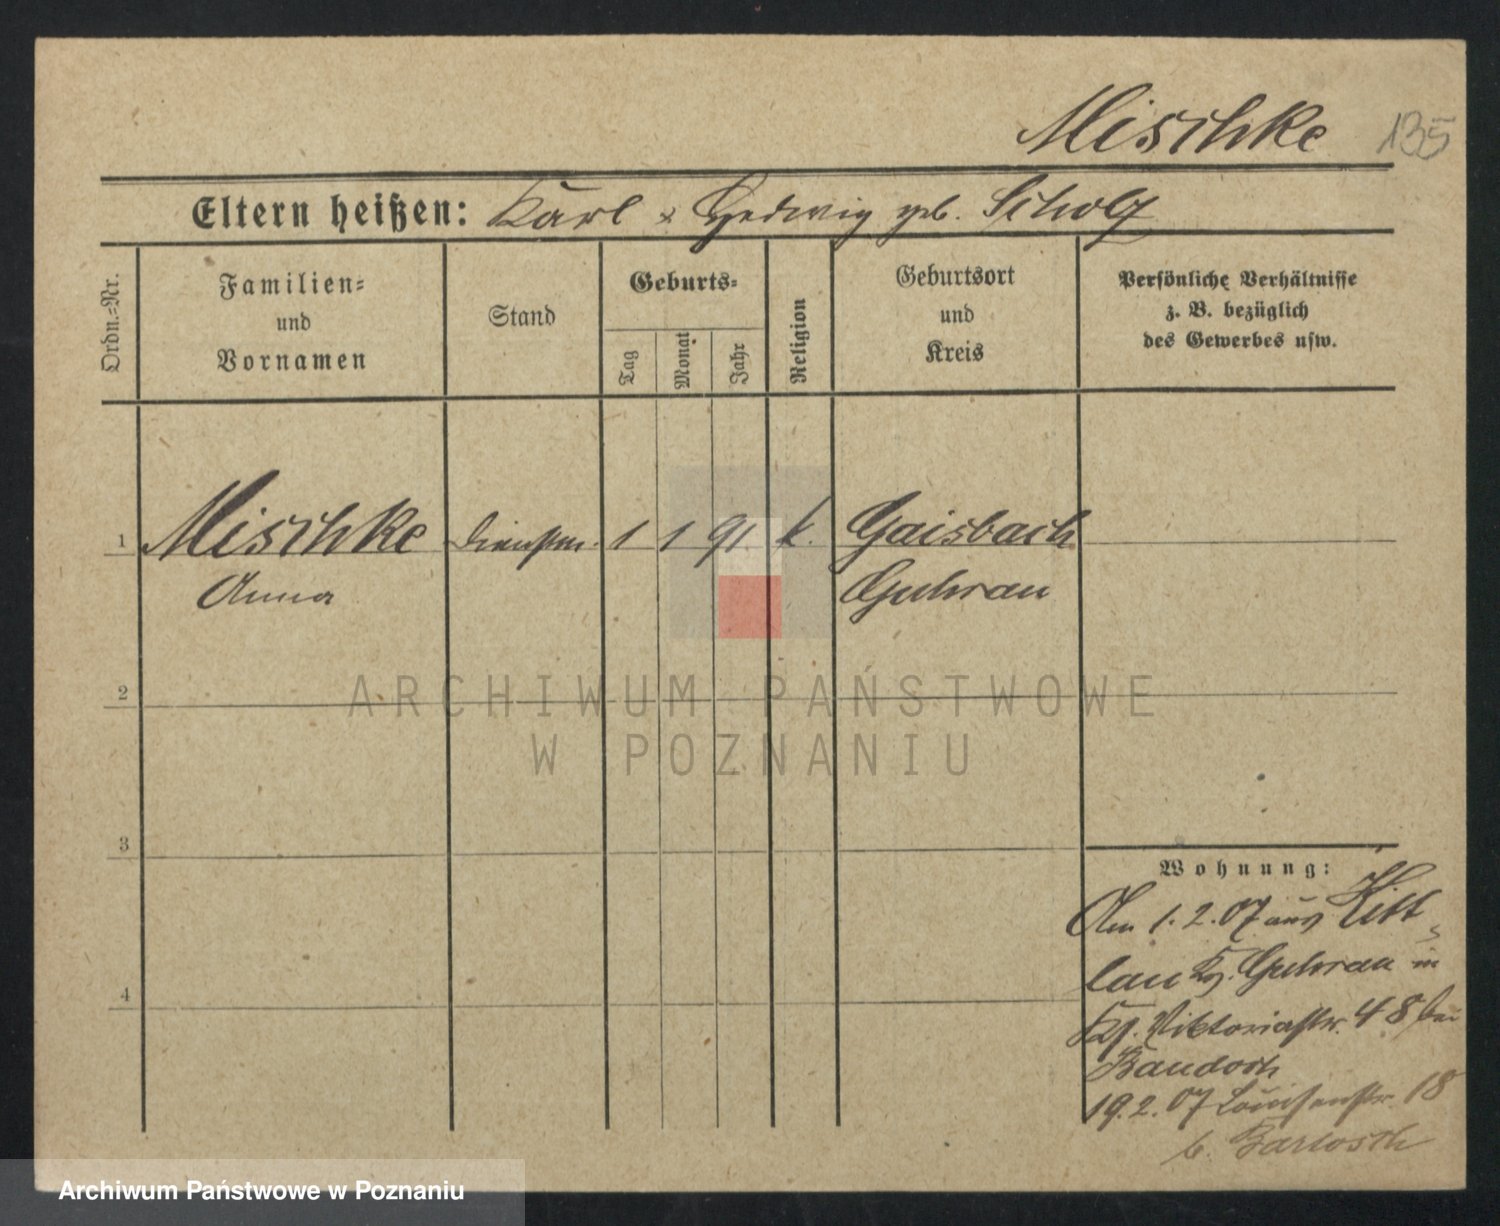 Mischke 135
Eltern heißen: Karl & Hedwig geb. Scholz
Ordn.-Nr.
Familien-
und
Vornamen
Stand
Geburts-
Tag
Monat
Jahr
Religion
Geburtsort
und
Kreis
Persönliche Verhältnisse
z. B. bezüglich
des Gewerbes usw.
1 Mischke Dienstm. 1 1 91. k. Gaisbach
Anna Guhrau
2
ARCHIWUM PAŃSTWOWE
W POZNANIU
3
Wohnung:
Am 1.2.07 aus Kitt-
lau Kr. Guhrau in
Viktoriastr. 48 bei
Bandosch
19.2.07 Louisenstr. 18
b. Bartosch
4
Archiwum Państwowe w Poznaniu